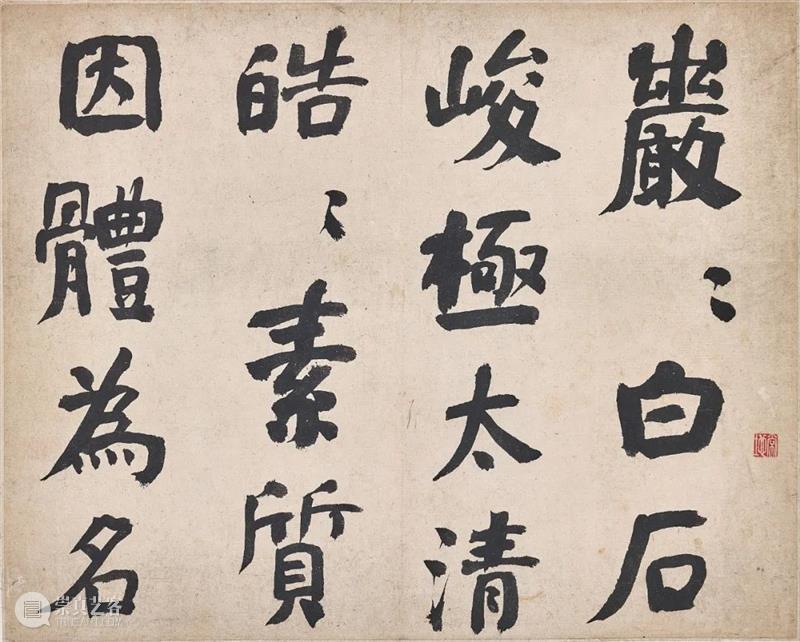 巖〻白石
峻極太清
皓〻素質
因體為名
崇真艺客